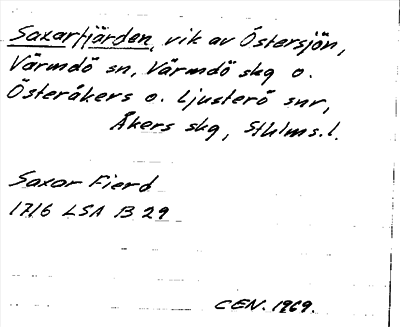 Saxarfjärden, vik av Östersjön,
Värmdö sn, Värmdö skg o.
Österåkers o. Ljusterö snr,
Åkers skg, Sthlms l.
Saxar Fierd
1716 LSA B 29
CEN. 1969.